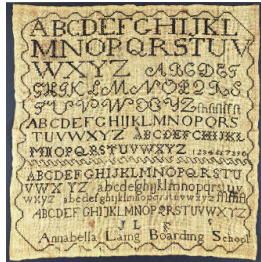 ABCDEFGHIJKL
MNOPQRSTUV
WXYZ ABCDEF
GHIKLMNOPQRS
TUVWXYZ
ABCDEFGHIJKLMNOPQRS
TUVWXYZ ABCDEFGHIJKL
MNOPQRSTUVWXYZ 1234567890
ABCDEFGHIJKLMNOPQRSTU
VWXYZ abcdefghijklmnopqrstuv
wxyz abcdefghijklmnopqrstuvwxyz
ABCDEFGHIJKLMNOPQRSTUVWXYZ
J L
Annabella Laing Boarding School